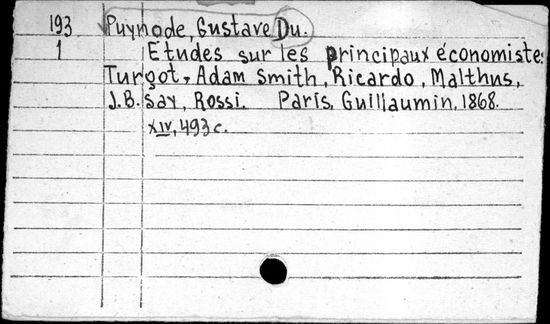 193 Puynode, Gustave Du.
1 Etudes sur les principaux économistes
Turgot, Adam Smith, Ricardo, Malthus,
J.B. Say, Rossi. Paris, Guillaumin, 1868.
XIV, 493 c.